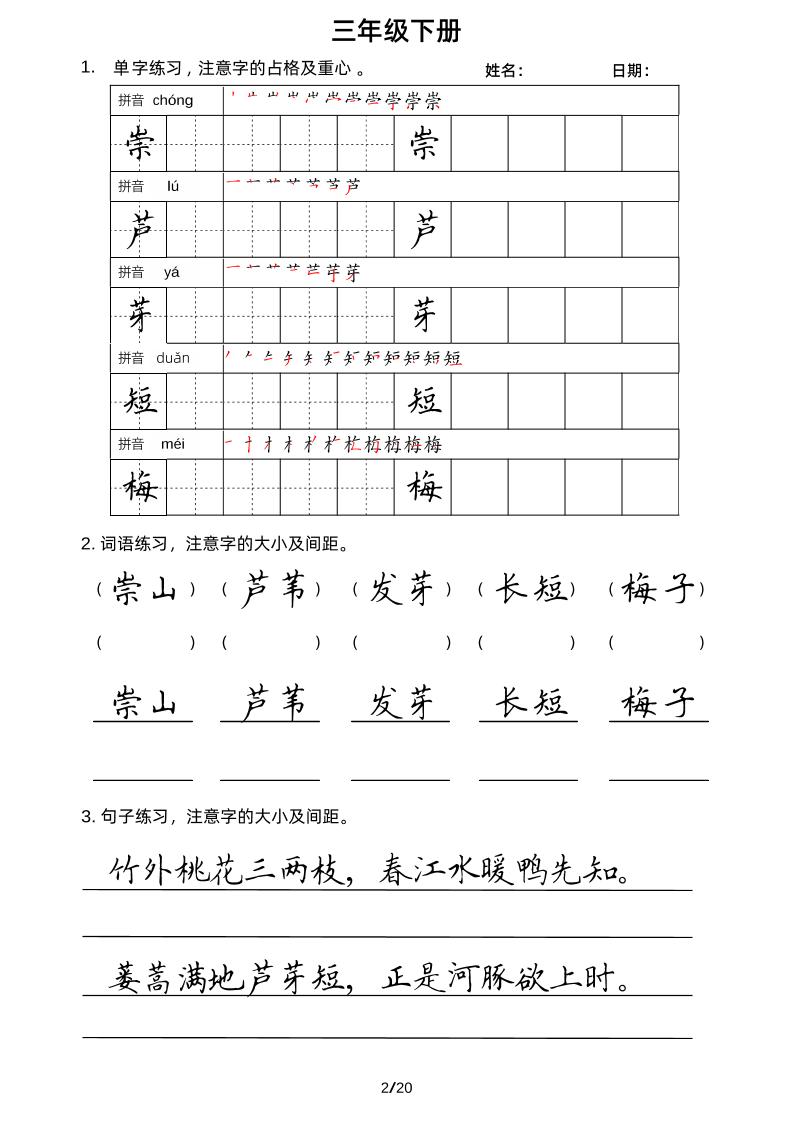 三年级下册
1. 单字练习，注意字的占格及重心 。 姓名： 日期：
拼音 chóng
崇 崇
拼音 lú
芦 芦
拼音 yá
芽 芽
拼音 duǎn
短 短
拼音 méi
梅 梅
2. 词语练习，注意字的大小及间距。
（崇山）（芦苇）（发芽）（长短）（梅子）
（ ）（ ）（ ）（ ）（ ）
崇山 芦苇 发芽 长短 梅子
3. 句子练习，注意字的大小及间距。
竹外桃花三两枝，春江水暖鸭先知。
蒌蒿满地芦芽短，正是河豚欲上时。
2/20